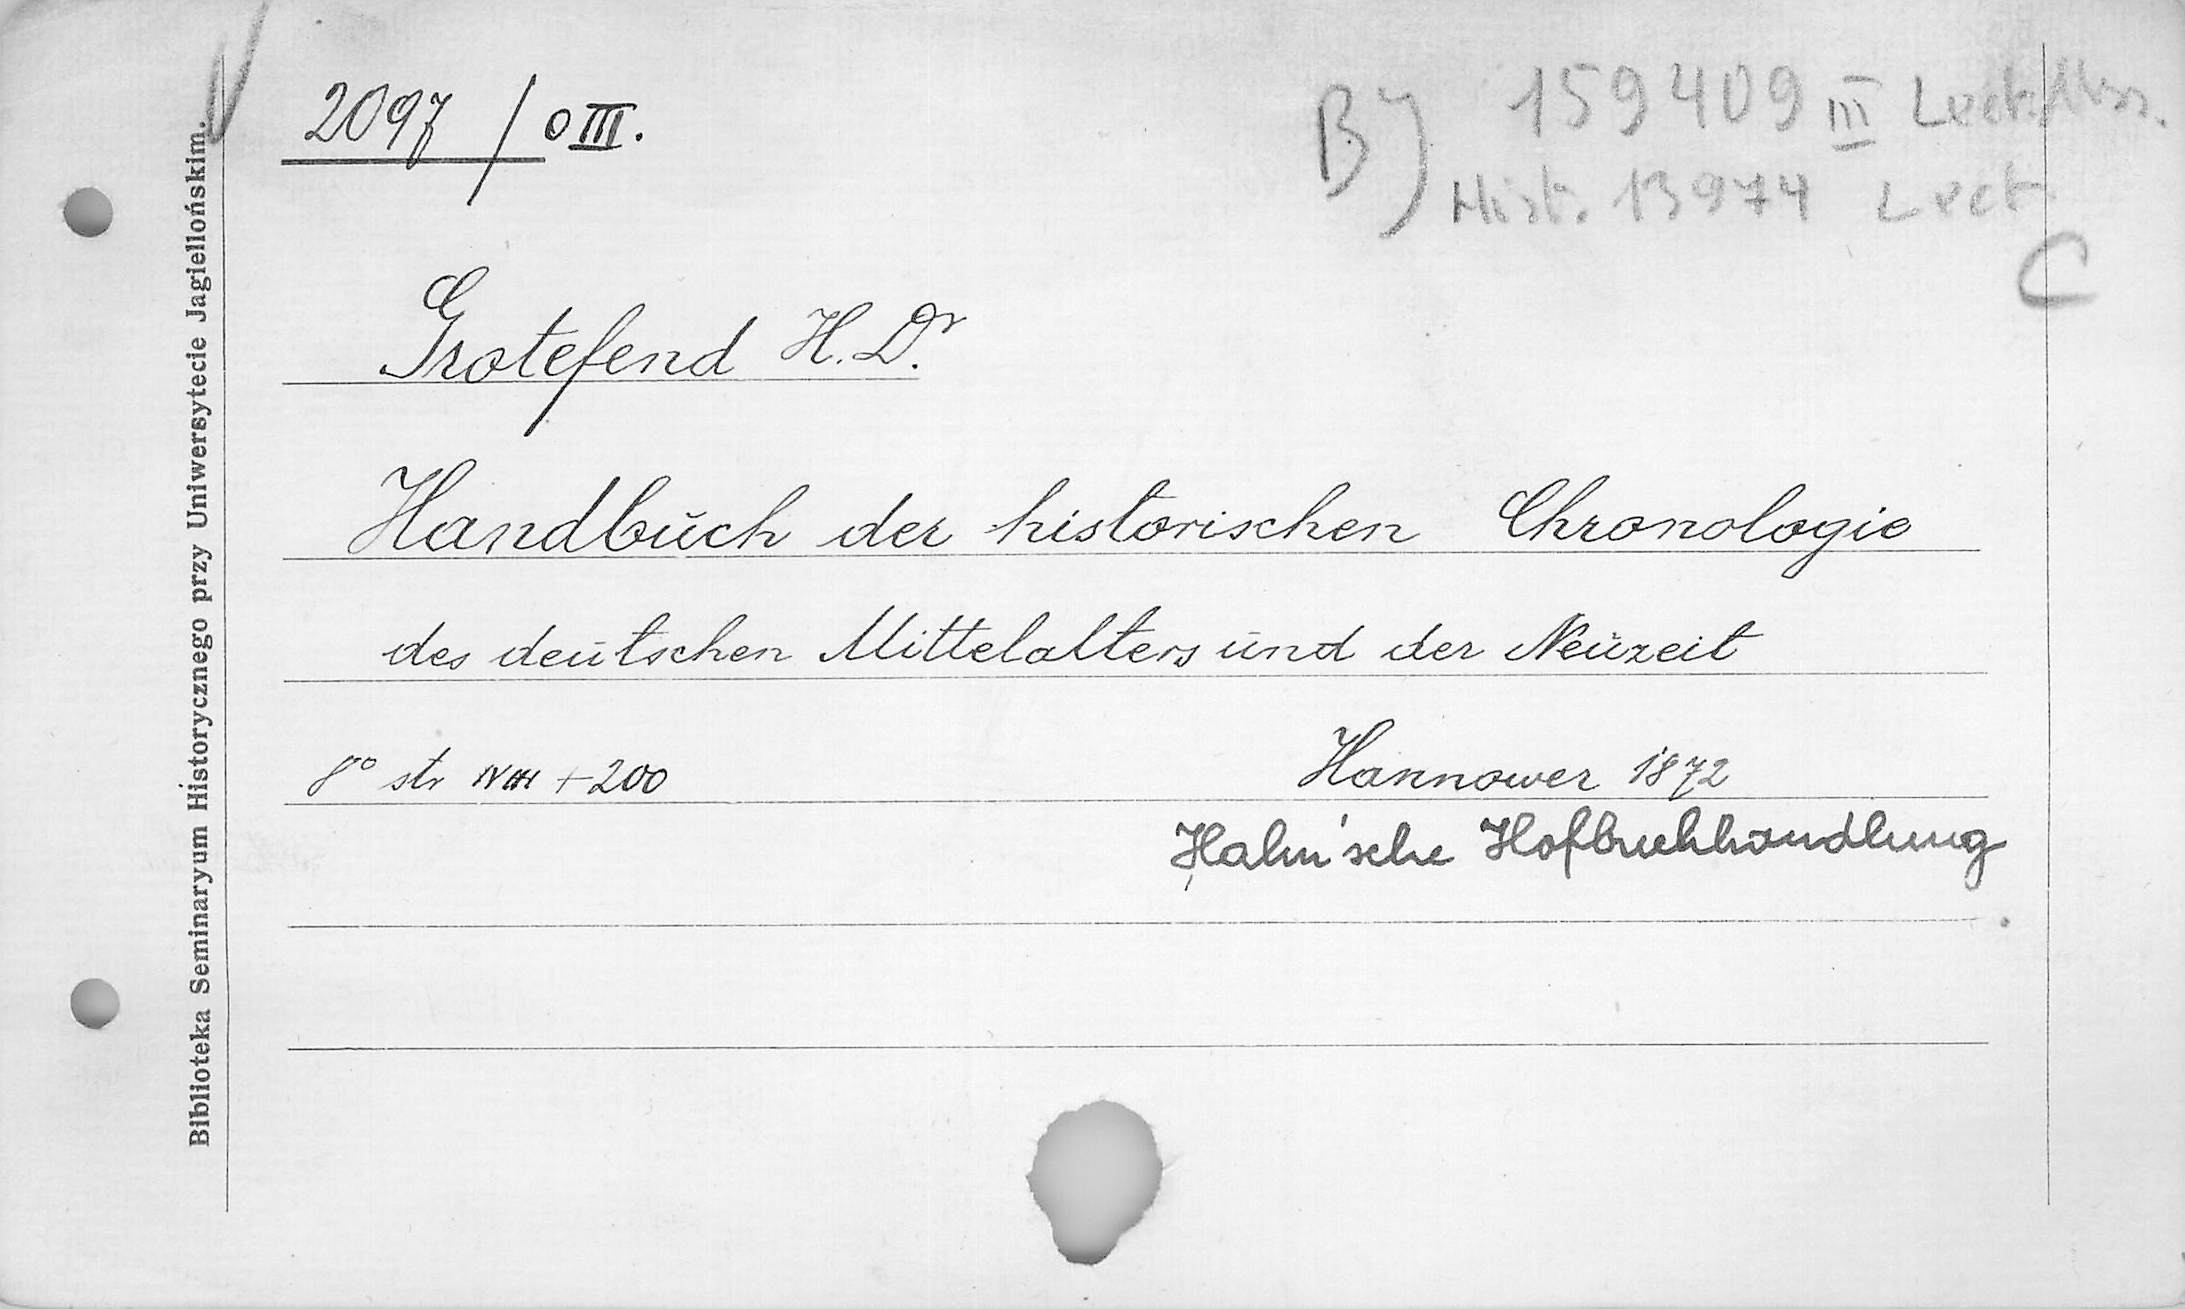 2097 / O III.
B) 159409 III Lect.
Hist. 13974 Lect
C
Grotefend H. Dr.
Handbŭch der historischen Chronologie
des deŭtschen Mittelalters ŭnd der Neŭzeit
8° str + 200 Hannower 1872
Hahn'sche Hofbuchhandlung
Biblioteka Seminaryum Historycznego przy Uniwersytecie Jagiellońskim.